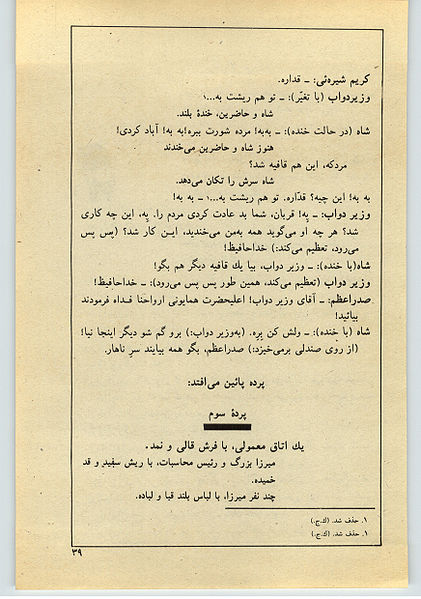 کریم شیره‌ئی: ــ قداره.
وزیردواب (با تغیّر): ــ تو هم ریشت به...۱
شاه و حاضرین، خندهٔ بلند.
شاه (در حالت خنده): ــ به‌به! مرده شورت ببره! به به! آباد کردی!
هنوز شاه و حاضرین می‌خندند
مردکه، این هم قافیه شد؟
شاه سرش را تکان می‌دهد.
به به! این چیه؟ قدّاره. تو هم ریشت به...۱ ــ به به!
وزیر دواب: ــ په! قربان، شما بد عادت کردی مردم را. په، این چه کاری
شد؟ هر چه او می‌گوید همه به‌من می‌خندید، ایـن کار شد؟ (پس پس
می‌رود، تعظیم می‌کند:) خداحافیظ!
شاه(با خنده): ــ وزیر دواب، بیا یك قافیه دیگر هم بگو!
وزیر دواب (تعظیم می‌کند، همین طور پس پس می‌رود): ــ خداحافیظ!
صدراعظم: ــ آقای وزیر دواب! اعلیحضرت همایونی ارواحنا فـداه فرمودند
بیائید!
شاه (با خنده): ــ ولش کن بره. (به‌وزیر دواب:) برو گم شو دیگر اینجا نیا!
(از روی صندلی برمی‌خیزد:) صدراعظم، بگو همه بیایند سر ناهار.
پرده پائین می‌افتد:
پردهٔ سوم
یك اتاق معمولی، با فرش قالی و نمد.
میرزا بزرگ و رئیس محاسبات، با ریش سفید و قد
خمیده.
چند نفر میرزا، با لباس بلند قبا و لباده.
۱. حذف شد. (ك.ج.)
۱. حذف شد. (ك.ج.)
۳۹